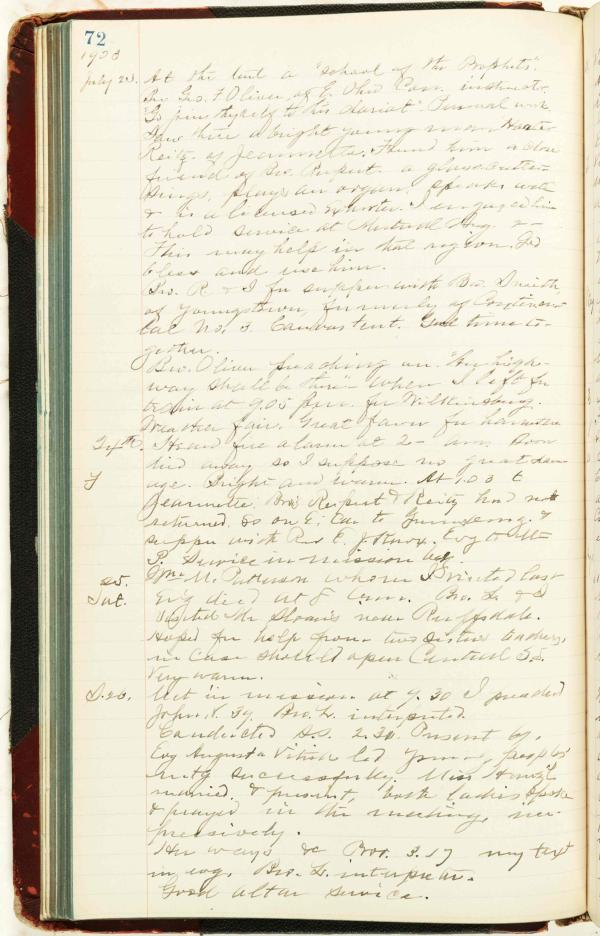 72
1903
July 23. At the tent a "School of the Prophets".
Rev. Geo. F. Oliver, of E. Ohio Con. instructor.
"Go join thyself to this chariot" Personal work.
Saw there a bright young man
Reitz, of Jeannette. Found him a close
friend of Bro. Rupert. a glass cutter
Sings, plays an organ, speaks well
& is a licensed Exhorter. I engaged him
to hold service at Mutual Aug. 2-
This may help in that region. God
bless and use him.
Bro. R & I for supper with Bro. Smith
of Youngstown, formerly of
No. 3. Canvas tent. Good time to-
gether.
Bro. Oliver preaching on "An high-
way shall be there-" When I left for
train at 9.05 p.m. for Wilkinsburg.
Weather fair. Great favor for
24th. Heard fire alarm at 2- a.m. Soon
F died away so I suppose no great dam-
age. Bright and warm. At 1.03 to
Jeannette. Bros Rupert & Reitz had not
returned. So on E. Car to &
supper with Rev E. J. Knox. Evg to Mt
P. Service in mission
25. Wm. M. Patterson whom I visited last
Sat. Ev'g died at 8 Bro. L. & I
visited Mr Sloan's near Ruffsdale.
Hoped for help from two sisters teachers,
in case should open Central S.S.
Very warm.
S. 26. Met in mission at 9.30 I preached
John V. 39. Bro. L. interpreted.
Conducted S.S. 2.30. Present 69.
Evg Augusta led young peoples
meetg successfully. Miss
married, & present, both ladies spoke
& prayed in the meeting, im-
pressively.
Her ways &c Prov. 3.17 my text
in evg. Bro. L. interpreter.
Good altar service.